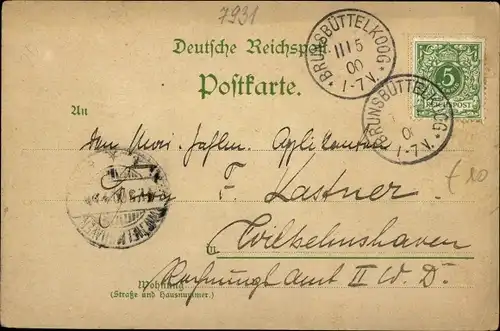 7931
Deutsche Reichspost
Postkarte.
BRUNSBÜTTELKOOG
11/5
00
1-7V.
5
REICHSPOST
BRUNSBÜTTELKOOG
00
1-7V.
An
den Mar. Zahlm. Applikanten
F. Kastner
£10
in Wilhelmshaven
Wohnung
(Straße und Hausnummer.)
Rechnungs Amt II W. D.